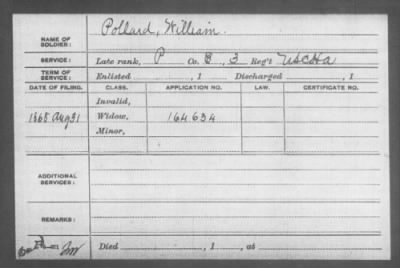 NAME OF SOLDIER: Pollard, William.
SERVICE: Late rank, P Co. B, 3 Reg't USCHa
TERM OF SERVICE: Enlisted , 1 Discharged , 1
DATE OF FILING. CLASS. APPLICATION NO. LAW. CERTIFICATE NO.
Invalid,
1868 Aug 31 Widow, 164634
Minor,
ADDITIONAL SERVICES:
REMARKS:
Died , 1 , at